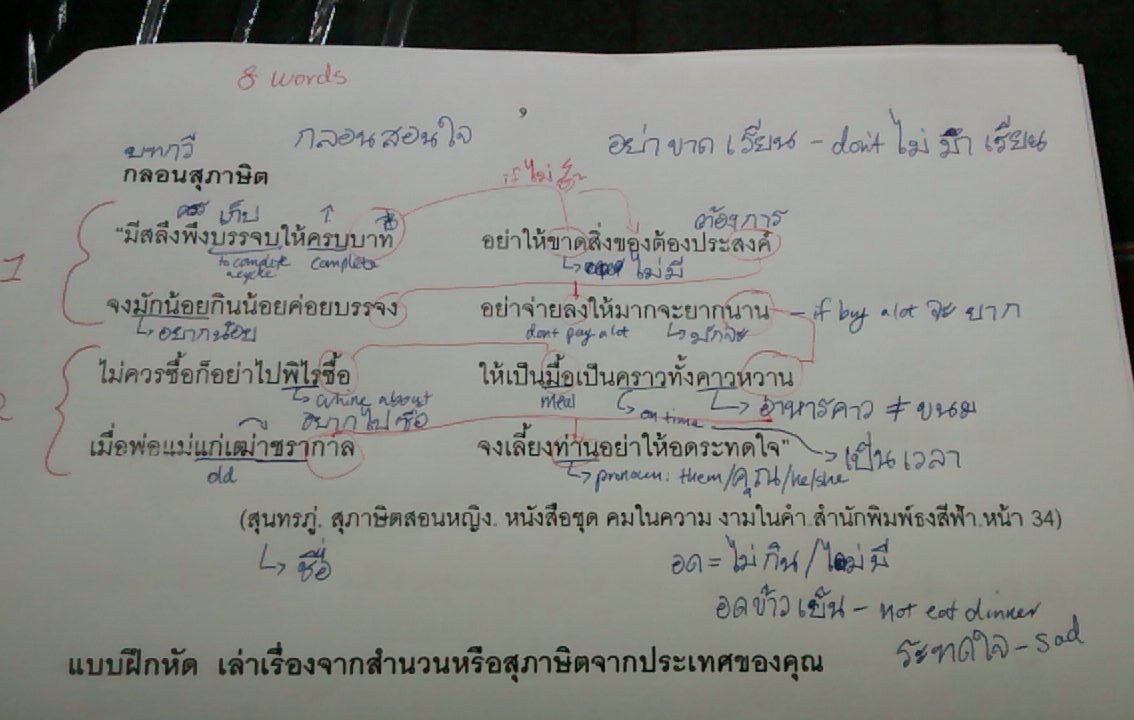 8 words
กลอนสอนใจ
อย่าขาดเรียน - don't ไม่มา เรียน
กลอนสุภาษิต
if ไม่
เก็บ ↑ ต้องการ
"มีสลึงพึงบรรจบให้ครบบาท อย่าให้ขาดสิ่งของต้องประสงค์
to complete a cycle complete ไม่มี
1
จงมักน้อยกินน้อยค่อยบรรจง อย่าจ่ายลงให้มากจะยากนาน - if buy a lot จะ ยาก
อยากน้อย dont pay alot มักจะ
ไม่ควรซื้อก็อย่าไปพิไรซื้อ ให้เป็นมื้อเป็นคราวทั้งคาวหวาน
whine about meal on time อาหารคาว ≠ ขนม
2
อยากไปซื้อ
เมื่อพ่อแม่แก่เฒ่าชรากาล จงเลี้ยงท่านอย่าให้อดระทดใจ" เป็นเวลา
old pronoun: them/คุณ/he/she
(สุนทรภู่. สุภาษิตสอนหญิง. หนังสือชุด คมในความ งามในคำ สำนักพิมพ์ธงสีฟ้า.หน้า 34)
ชื่อ อด = ไม่กิน / ไม่มี
อดข้าวเย็น - not eat dinner
ระทดใจ - sad
แบบฝึกหัด เล่าเรื่องจากสำนวนหรือสุภาษิตจากประเทศของคุณ